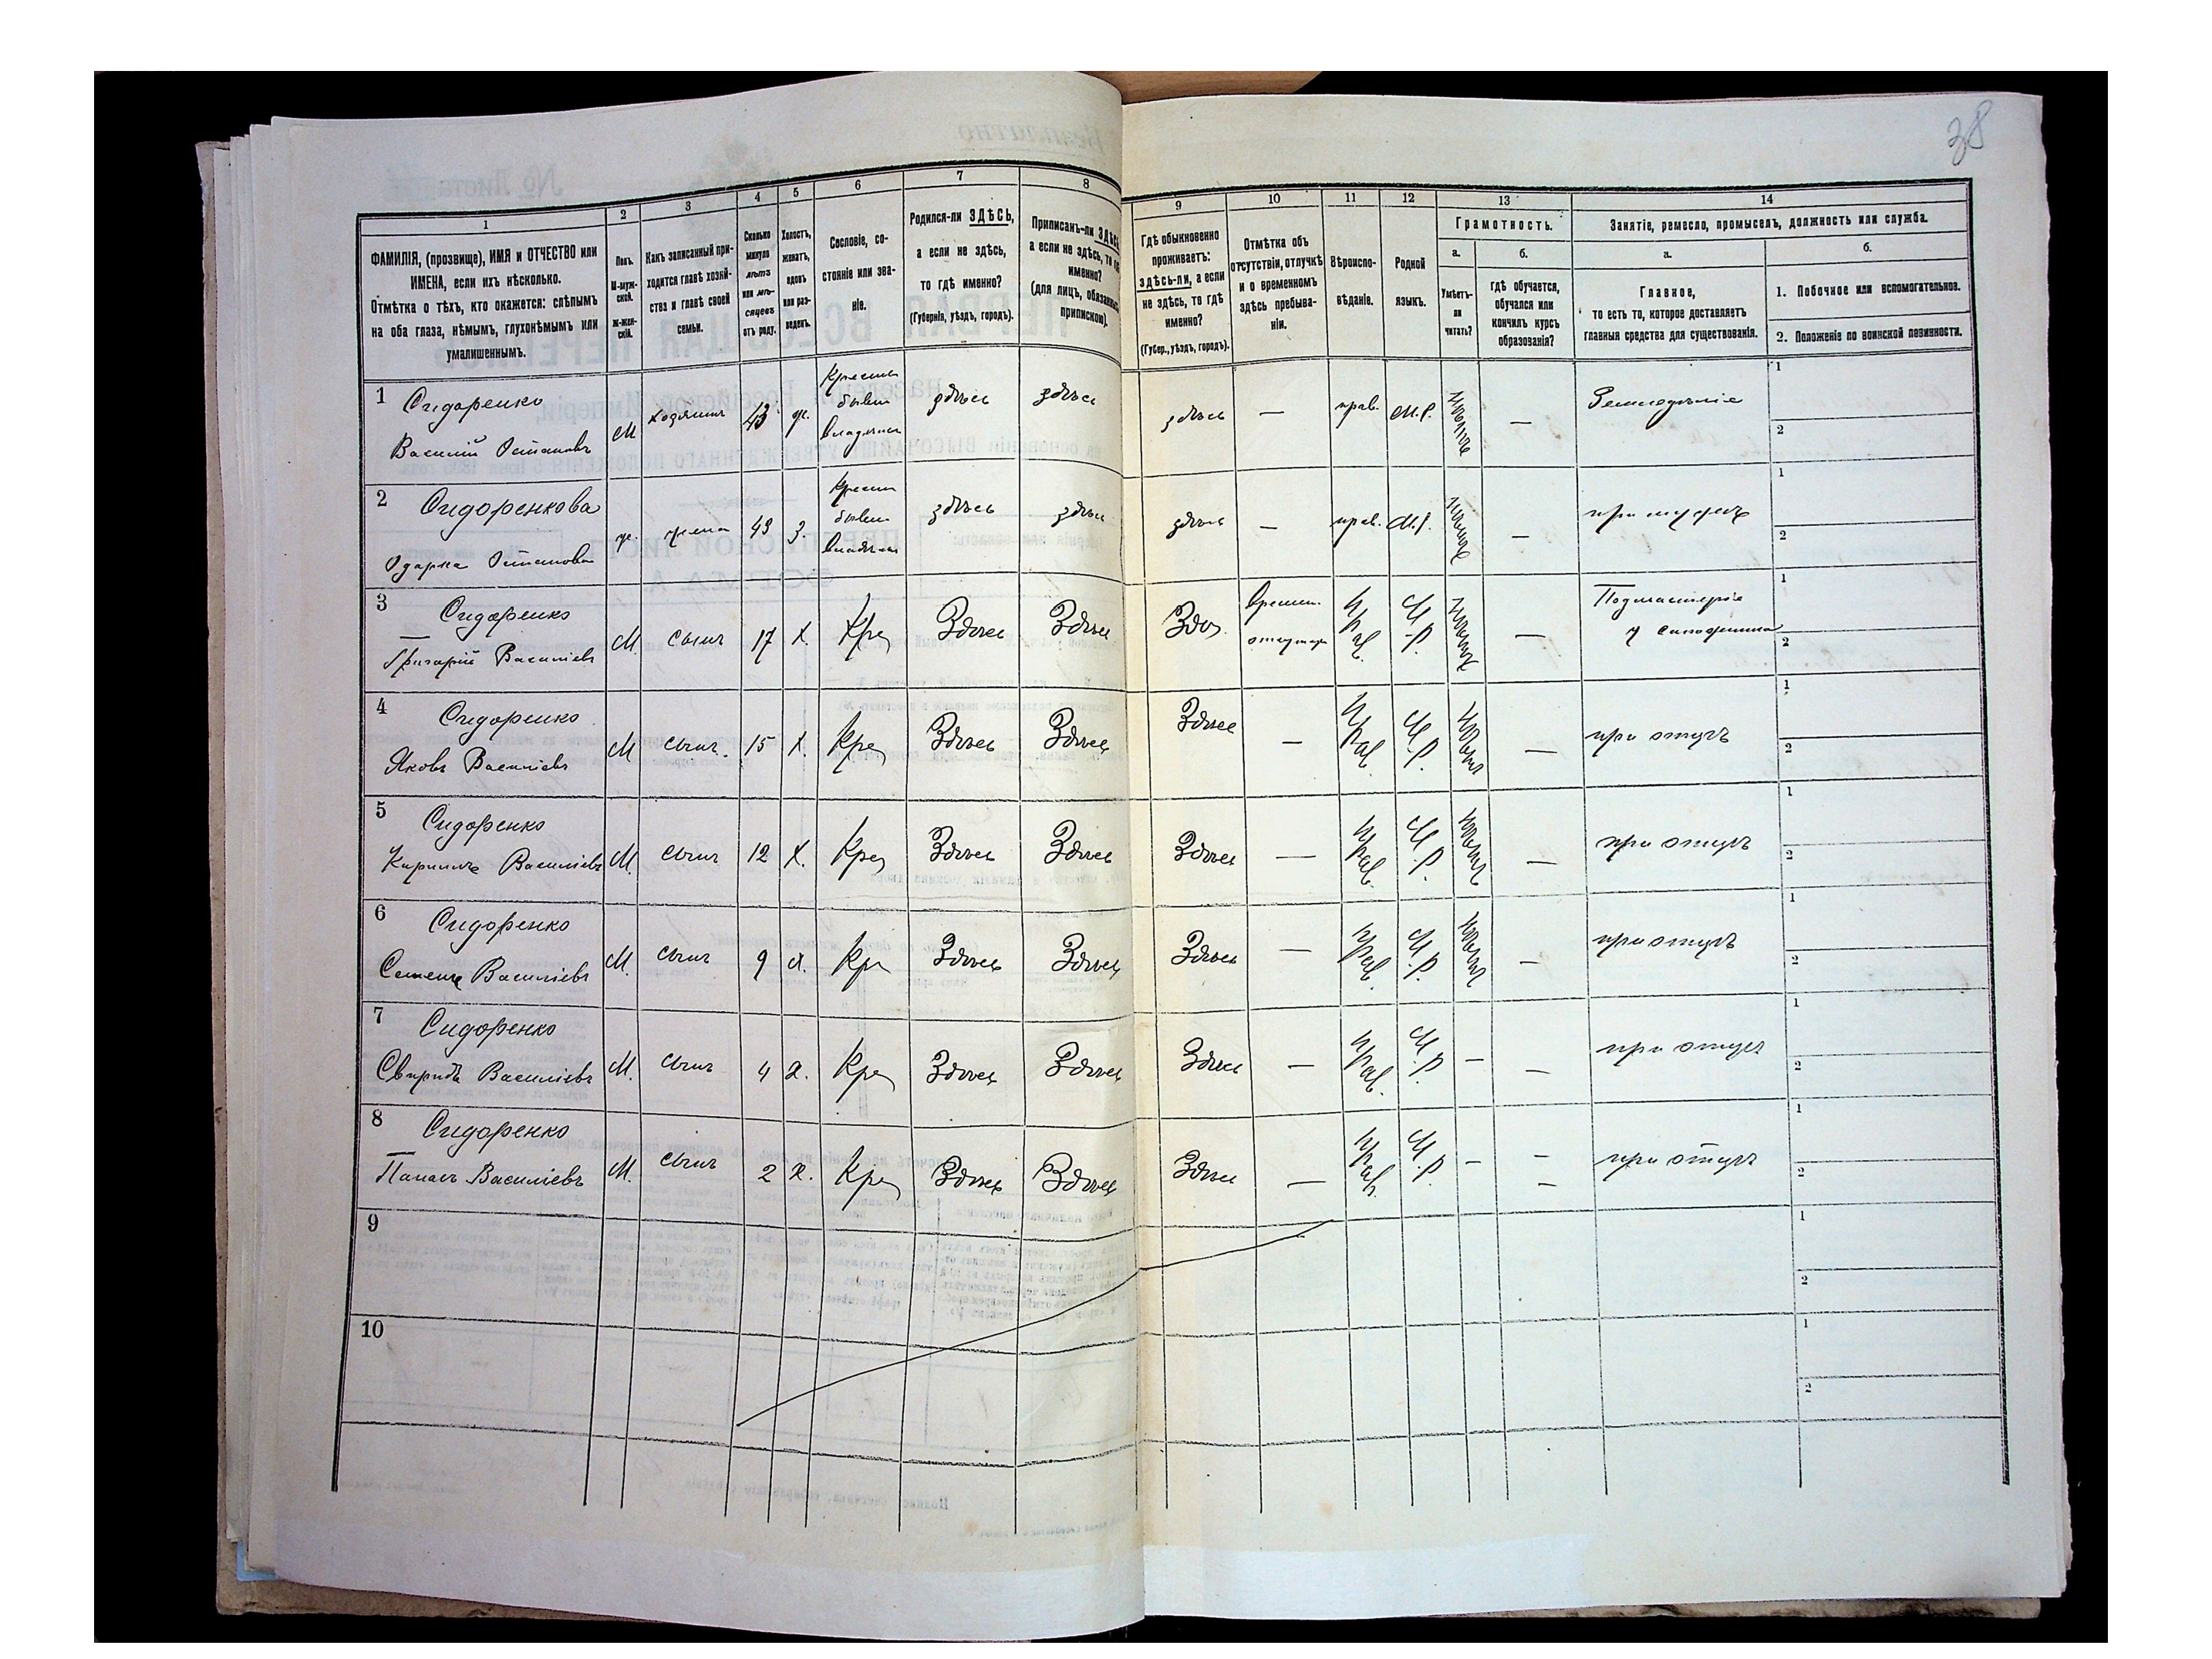 38
1 2 3 4 5 6 7 8 9 10 11 12 13 14
ФАМИЛІЯ, (прозвище), ИМЯ и ОТЧЕСТВО или
ИМЕНА, если ихъ нѣсколько.
Отмѣтка о тѣхъ, кто окажется: слѣпымъ
на оба глаза, нѣмымъ, глухонѣмымъ или
умалишеннымъ.
Полъ.
М-муж-
ской.
Ж-жен-
скій.
Какъ записанный при-
ходится главѣ хозяй-
ства и главѣ своей
семьи.
Сколько
минуло
лѣтъ
или мѣ-
сяцевъ
отъ роду.
Холостъ,
женатъ,
вдовъ
или раз-
веденъ.
Сословіе, со-
стояніе или зва-
ніе.
Родился-ли ЗДѢСЬ,
а если не здѣсь,
то гдѣ именно?
(Губернія, уѣздъ, городъ).
Приписанъ-ли ЗДѢСЬ,
а если не здѣсь, то гдѣ
именно?
(для лицъ, обязанныхъ
припискою).
Гдѣ обыкновенно
проживаетъ:
здѣсь-ли, а если
не здѣсь, то гдѣ
именно?
(Губер., уѣздъ, городъ).
Отмѣтка объ
отсутствіи, отлучкѣ
и о временномъ
здѣсь пребыва-
ніи.
Вѣроиспо-
вѣданіе.
Родной
языкъ.
Грамотность.
а.
Умѣетъ-
ли
читать?
б.
гдѣ обучается,
обучался или
кончилъ курсъ
образованія?
Занятіе, ремесло, промыселъ, должность или служба.
а.
Главное,
то есть то, которое доставляетъ
главныя средства для существованія.
б.
1. Побочное или вспомогательное.
2. Положеніе по воинской повинности.
1 Сидоренко
Василій Остаповъ
М хозяинъ 43 ж. Крестьян бывш владѣльч здѣсь здѣсь здѣсь — прав. М.Р. — Земледѣліе 1 2
2 Сидоренкова
Одарка Остапова
ж. жена 43 З. Крестьян бывш владѣльч здѣсь здѣсь здѣсь — прав. М.Р. — при мужѣ 1 2
3 Сидоренко
Григорій Васильевъ
М. сынъ 17 Х. Кре Здѣсь Здѣсь Здѣс Времен. Прав. М.Р. — Подмастеріе у сапожника 1 2
4 Сидоренко
Яковъ Василіевъ
М сынъ. 15 Х. Кре Здѣсь Здѣсь Здѣсь — Прав. М.Р. — при отцѣ 1 2
5 Сидоренко
Кириллъ Василіевъ
М. сынъ 12 Х. Кре Здѣсь Здѣсь Здѣсь — Прав. М.Р. — при отцѣ 1 2
6 Сидоренко
Семенъ Василіевъ
М. сынъ 9 х. Кр Здѣсь Здѣсь Здѣсь — Прав. М.Р. — при отцѣ 1 2
7 Сидоренко
Свиридъ Василіевъ
М. сынъ 4 Х. Кре Здѣсь Здѣсь Здѣсь — Прав. М.Р. — — при отцѣ 1 2
8 Сидоренко
Панасъ Василіевъ
М. сынъ 2 Х. Кре Здѣсь Здѣсь Здѣсь — Прав. М.Р. — — при отцѣ 1 2
9 1 2
10 1 2